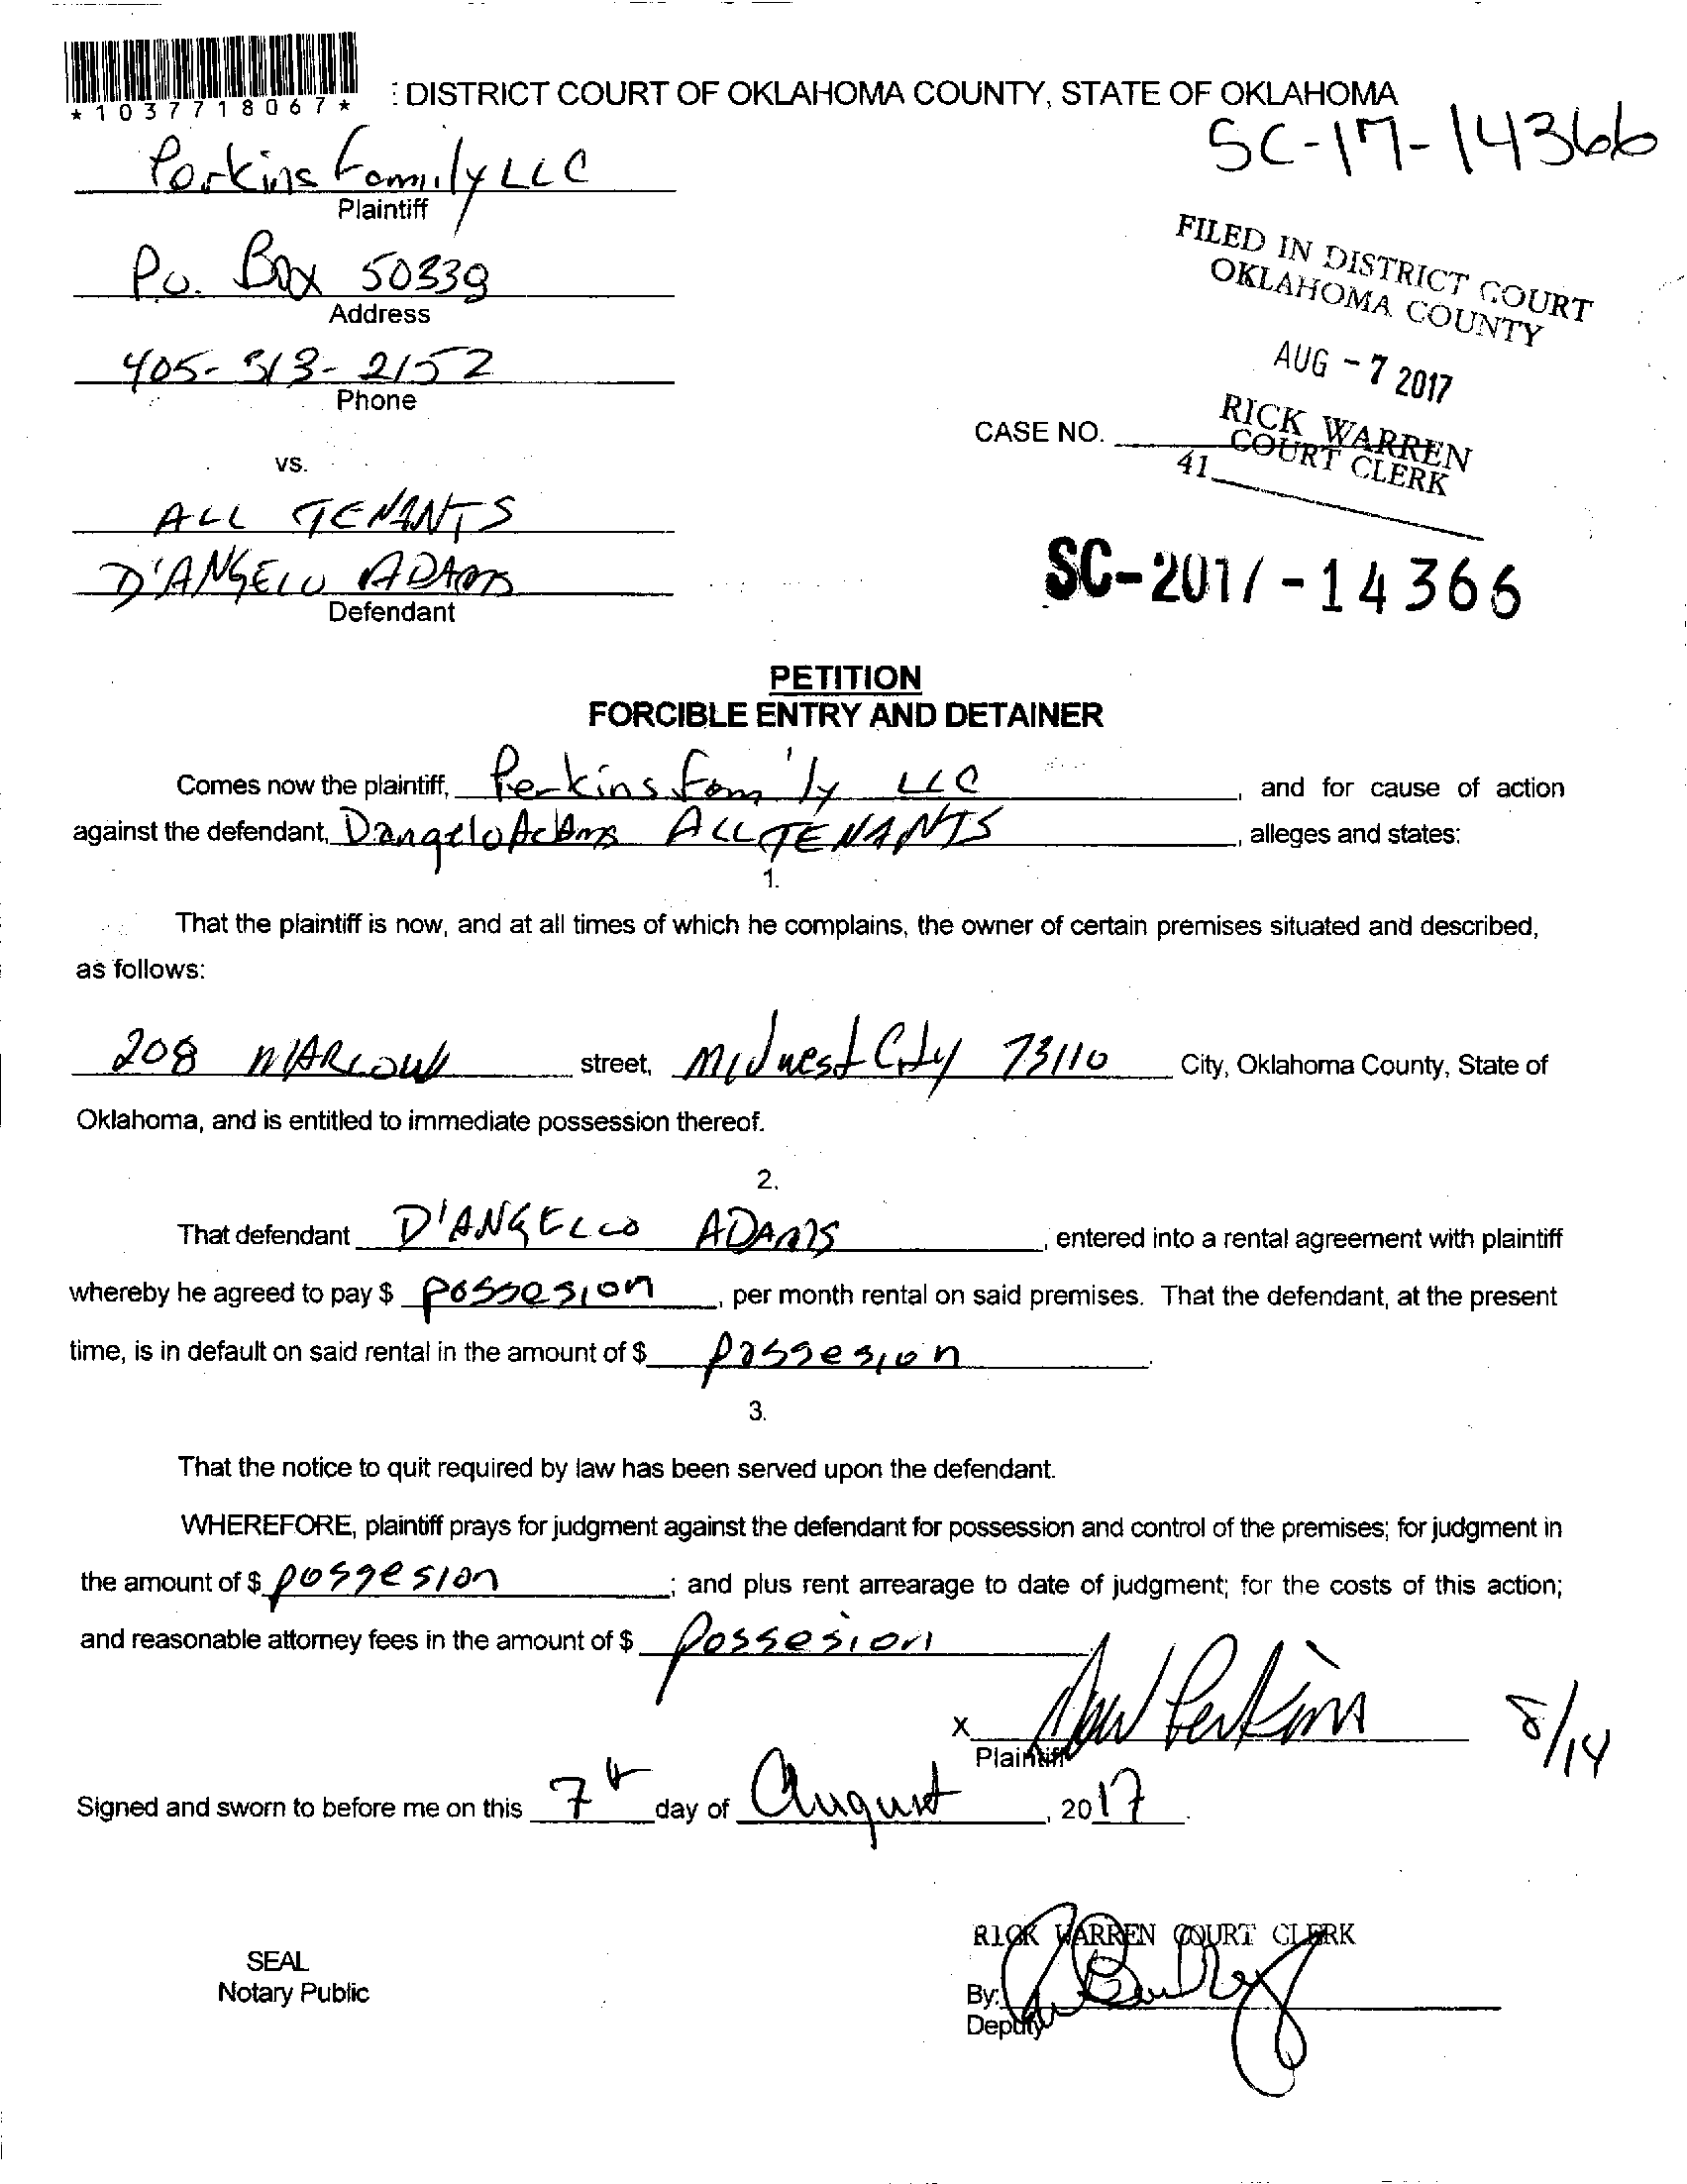 *1037718067*
: DISTRICT COURT OF OKLAHOMA COUNTY, STATE OF OKLAHOMA
SC-17-14366
Perkins Family LLC
Plaintiff
P.O. Box 50339
Address
405-313-2152
Phone
FILED IN DISTRICT COURT
OKLAHOMA COUNTY
AUG - 7 2017
RICK WARREN
COURT CLERK
41
CASE NO.
vs.
ALL TENANTS
D'ANGELO ADAMS
Defendant
SC-2017-14366
PETITION
FORCIBLE ENTRY AND DETAINER
Comes now the plaintiff, Perkins Family LLC, and for cause of action
against the defendant, Dangelo Adams ALL TENANTS, alleges and states:
1.
That the plaintiff is now, and at all times of which he complains, the owner of certain premises situated and described,
as follows:
208 MARLOW street, Midwest City 73110 City, Oklahoma County, State of
Oklahoma, and is entitled to immediate possession thereof.
2.
That defendant D'ANGELLO ADAMS, entered into a rental agreement with plaintiff
whereby he agreed to pay $ possesion, per month rental on said premises. That the defendant, at the present
time, is in default on said rental in the amount of $ possesion.
3.
That the notice to quit required by law has been served upon the defendant.
WHEREFORE, plaintiff prays for judgment against the defendant for possession and control of the premises; for judgment in
the amount of $ possesion; and plus rent arrearage to date of judgment; for the costs of this action;
and reasonable attorney fees in the amount of $ Possesion
x Perkins
Plaintiff
8/14
Signed and sworn to before me on this 7th day of August, 2017.
RICK WARREN COURT CLERK
SEAL
Notary Public
By:
Deputy